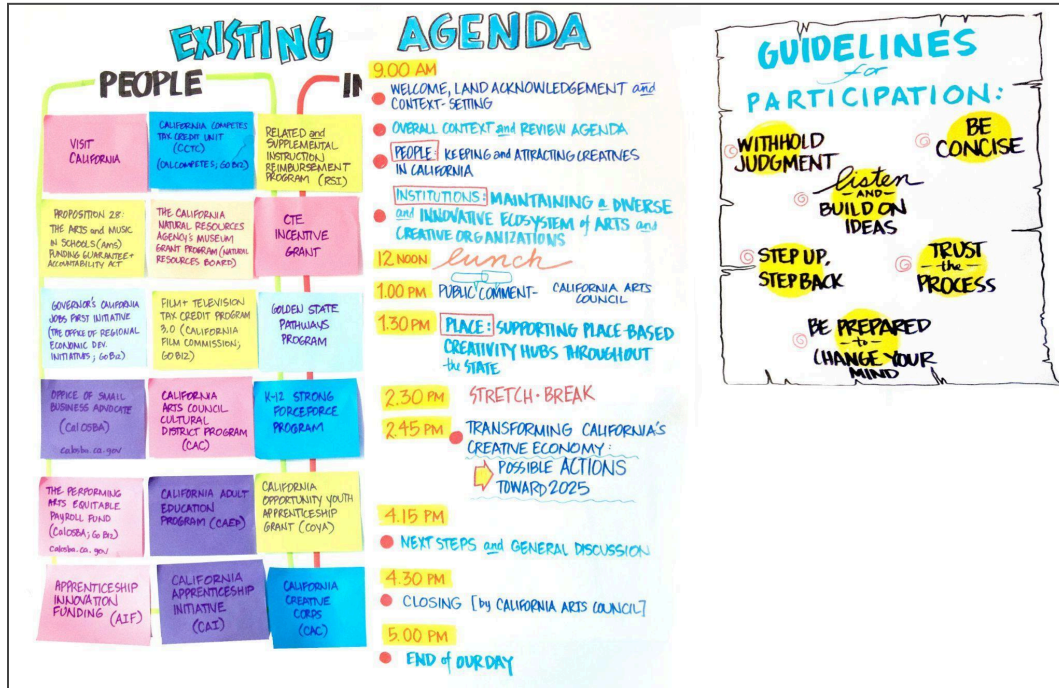 EXISTING
PEOPLE
IN
VISIT
CALIFORNIA
CALIFORNIA COMPETES
TAX CREDIT UNIT
(CCTC)
(CALCOMPETES; GO BIZ)
RELATED and
SUPPLEMENTAL
INSTRUCTION
REIMBURSEMENT
PROGRAM (RSI)
PROPOSITION 28:
THE ARTS AND MUSIC
IN SCHOOLS (AMS)
FUNDING GUARANTEE +
ACCOUNTABILITY ACT
THE CALIFORNIA
NATURAL RESOURCES
AGENCY'S MUSEUM
GRANT PROGRAM (NATURAL
RESOURCES BOARD)
CTE
INCENTIVE
GRANT
GOVERNOR'S CALIFORNIA
JOBS FIRST INITIATIVE
(THE OFFICE OF REGIONAL
ECONOMIC DEV.
INITIATIVES; GO BIZ)
FILM + TELEVISION
TAX CREDIT PROGRAM
3.0 (CALIFORNIA
FILM COMMISSION;
GO BIZ)
GOLDEN STATE
PATHWAYS
PROGRAM
OFFICE OF SMALL
BUSINESS ADVOCATE
(CalOSBA)
calosba.ca.gov
CALIFORNIA
ARTS COUNCIL
CULTURAL
DISTRICT PROGRAM
(CAC)
K-12 STRONG
FORCEFORCE
PROGRAM
THE PERFORMING
ARTS EQUITABLE
PAYROLL FUND
(CalOSBA; GO BIZ)
calosba.ca.gov
CALIFORNIA ADULT
EDUCATION
PROGRAM (CAEP)
CALIFORNIA
OPPORTUNITY YOUTH
APPRENTICESHIP
GRANT (COYA)
APPRENTICESHIP
INNOVATION
FUNDING (AIF)
CALIFORNIA
APPRENTICESHIP
INITIATIVE
(CAI)
CALIFORNIA
CREATIVE
CORPS
(CAC)
AGENDA
9.00 AM
WELCOME, LAND ACKNOWLEDGEMENT and
CONTEXT-SETTING
OVERALL CONTEXT and REVIEW AGENDA
PEOPLE: KEEPING and ATTRACTING CREATIVES
IN CALIFORNIA
INSTITUTIONS: MAINTAINING a DIVERSE
and INNOVATIVE ECOSYSTEM OF ARTS and
CREATIVE ORGANIZATIONS
12 NOON lunch
1.00 PM PUBLIC COMMENT- CALIFORNIA ARTS
COUNCIL
1.30 PM PLACE: SUPPORTING PLACE-BASED
CREATIVITY HUBS THROUGHOUT
the STATE
2.30 PM STRETCH·BREAK
2.45 PM TRANSFORMING CALIFORNIA'S
CREATIVE ECONOMY:
POSSIBLE ACTIONS
TOWARD 2025
4.15 PM
NEXT STEPS and GENERAL DISCUSSION
4.30 PM
CLOSING [by CALIFORNIA ARTS COUNCIL]
5.00 PM
END of OUR DAY
GUIDELINES
for
PARTICIPATION:
WITHHOLD
JUDGMENT
BE
CONCISE
listen
-AND-
BUILD ON
IDEAS
STEP UP,
STEP BACK
TRUST
-the-
PROCESS
BE PREPARED
-to-
CHANGE YOUR
MIND